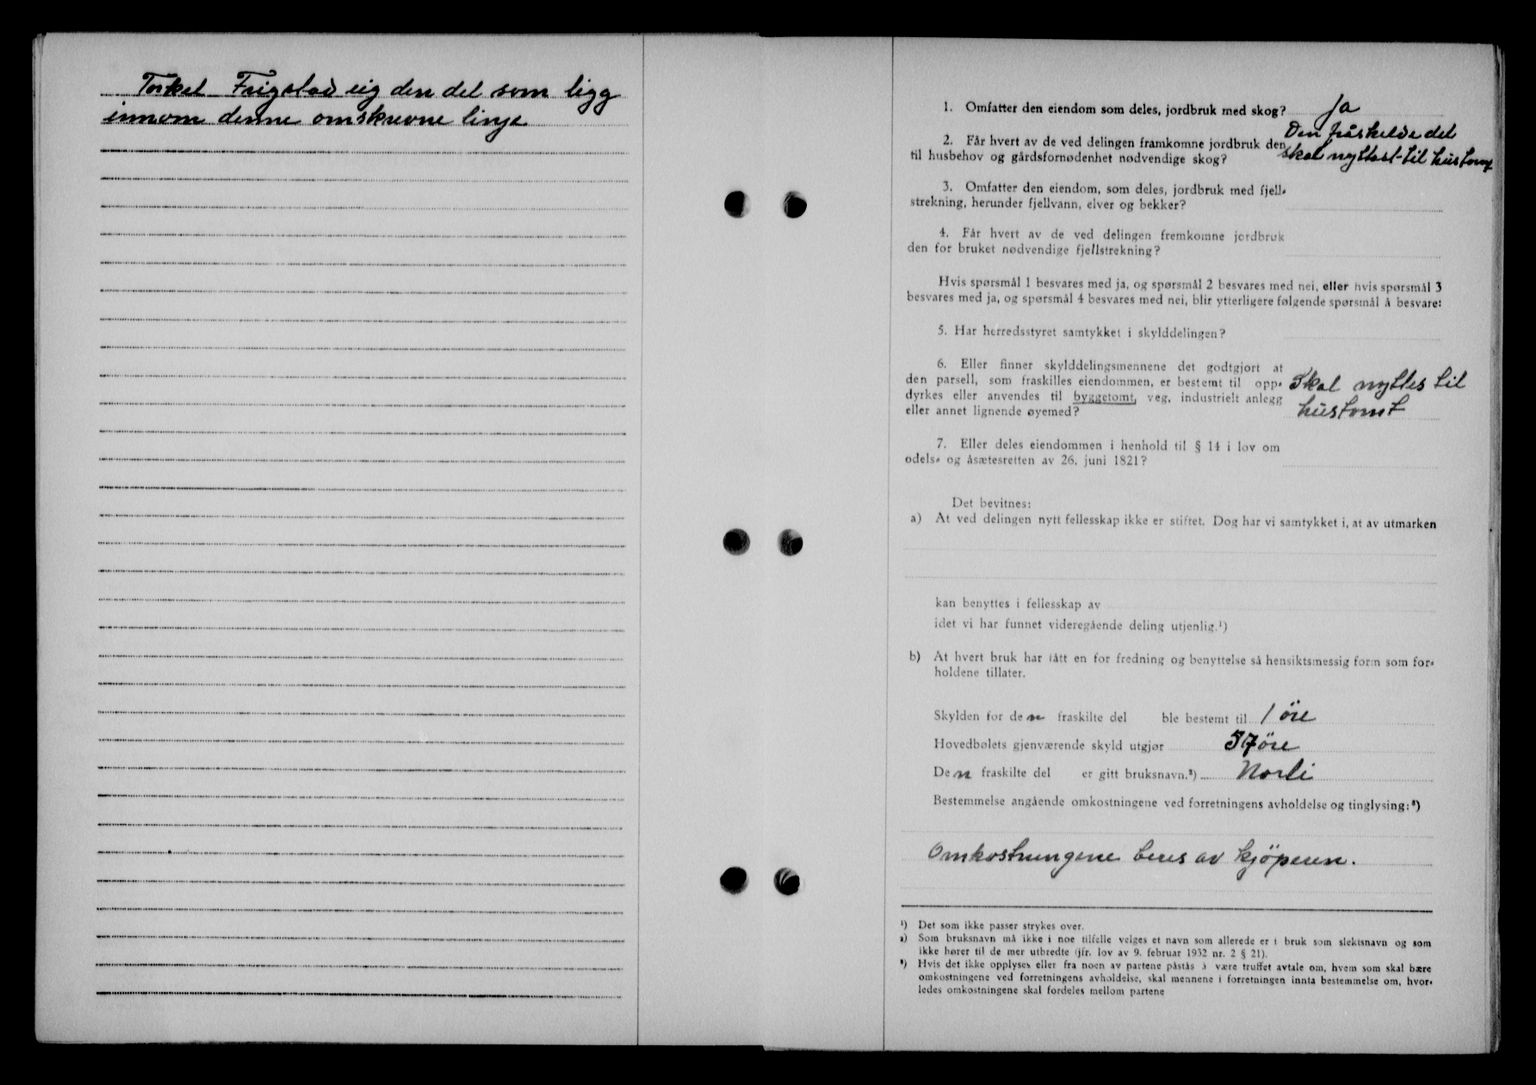 Torkel Frigstad eig den del som ligg
innom denne omskrevne linje
1. Omfatter den eiendom som deles, jordbruk med skog? Ja
2. Får hvert av de ved delingen framkomne jordbruk den
til husbehov og gårdsfornødenhet nødvendige skog?
Den fråskelde del
skal nyttast til hustomt
3. Omfatter den eiendom, som deles, jordbruk med fjell-
strekning, herunder fjellvann, elver og bekker?
4. Får hvert av de ved delingen fremkomne jordbruk
den for bruket nødvendige fjellstrekning?
Hvis spørsmål 1 besvares med ja, og spørsmål 2 besvares med nei, eller hvis spørsmål 3
besvares med ja, og spørsmål 4 besvares med nei, blir ytterligere følgende spørsmål å besvare:
5. Har herredsstyret samtykket i skylddelingen?
6. Eller finner skylddelingsmennene det godtgjort at
den parsell, som fraskilles eiendommen, er bestemt til opp-
dyrkes eller anvendes til byggetomt, veg, industrielt anlegg
eller annet lignende øyemed?
Skal nyttes til
hustomt
7. Eller deles eiendommen i henhold til § 14 i lov om
odels- og åsætesretten av 26. juni 1821?
Det bevitnes:
a) At ved delingen nytt fellesskap ikke er stiftet. Dog har vi samtykket i, at av utmarken
kan benyttes i fellesskap av
idet vi har funnet videregående deling utjenlig.¹)
b) At hvert bruk har fått en for fredning og benyttelse så hensiktsmessig form som for-
holdene tillater.
Skylden for den fraskilte del ble bestemt til 1 öre
Hovedbølets gjenværende skyld utgjør 57 öre
Den fraskilte del er gitt bruksnavn.²) Norli
Bestemmelse angående omkostningene ved forretningens avholdelse og tinglysing:³)
Omkostningene beres av kjöperen.
¹) Det som ikke passer strykes over.
²) Som bruksnavn må ikke i noe tilfelle velges et navn som allerede er i bruk som slektsnavn og som
ikke hører til de mer utbredte (jfr. lov av 9. februar 1932 nr. 2 § 21).
³) Hvis det ikke opplyses eller fra noen av partene påstås å være truffet avtale om, hvem som skal bære
omkostningene ved forretningens avholdelse, skal mennene i forretningen innta bestemmelse om, hvor-
ledes omkostningene skal fordeles mellom partene